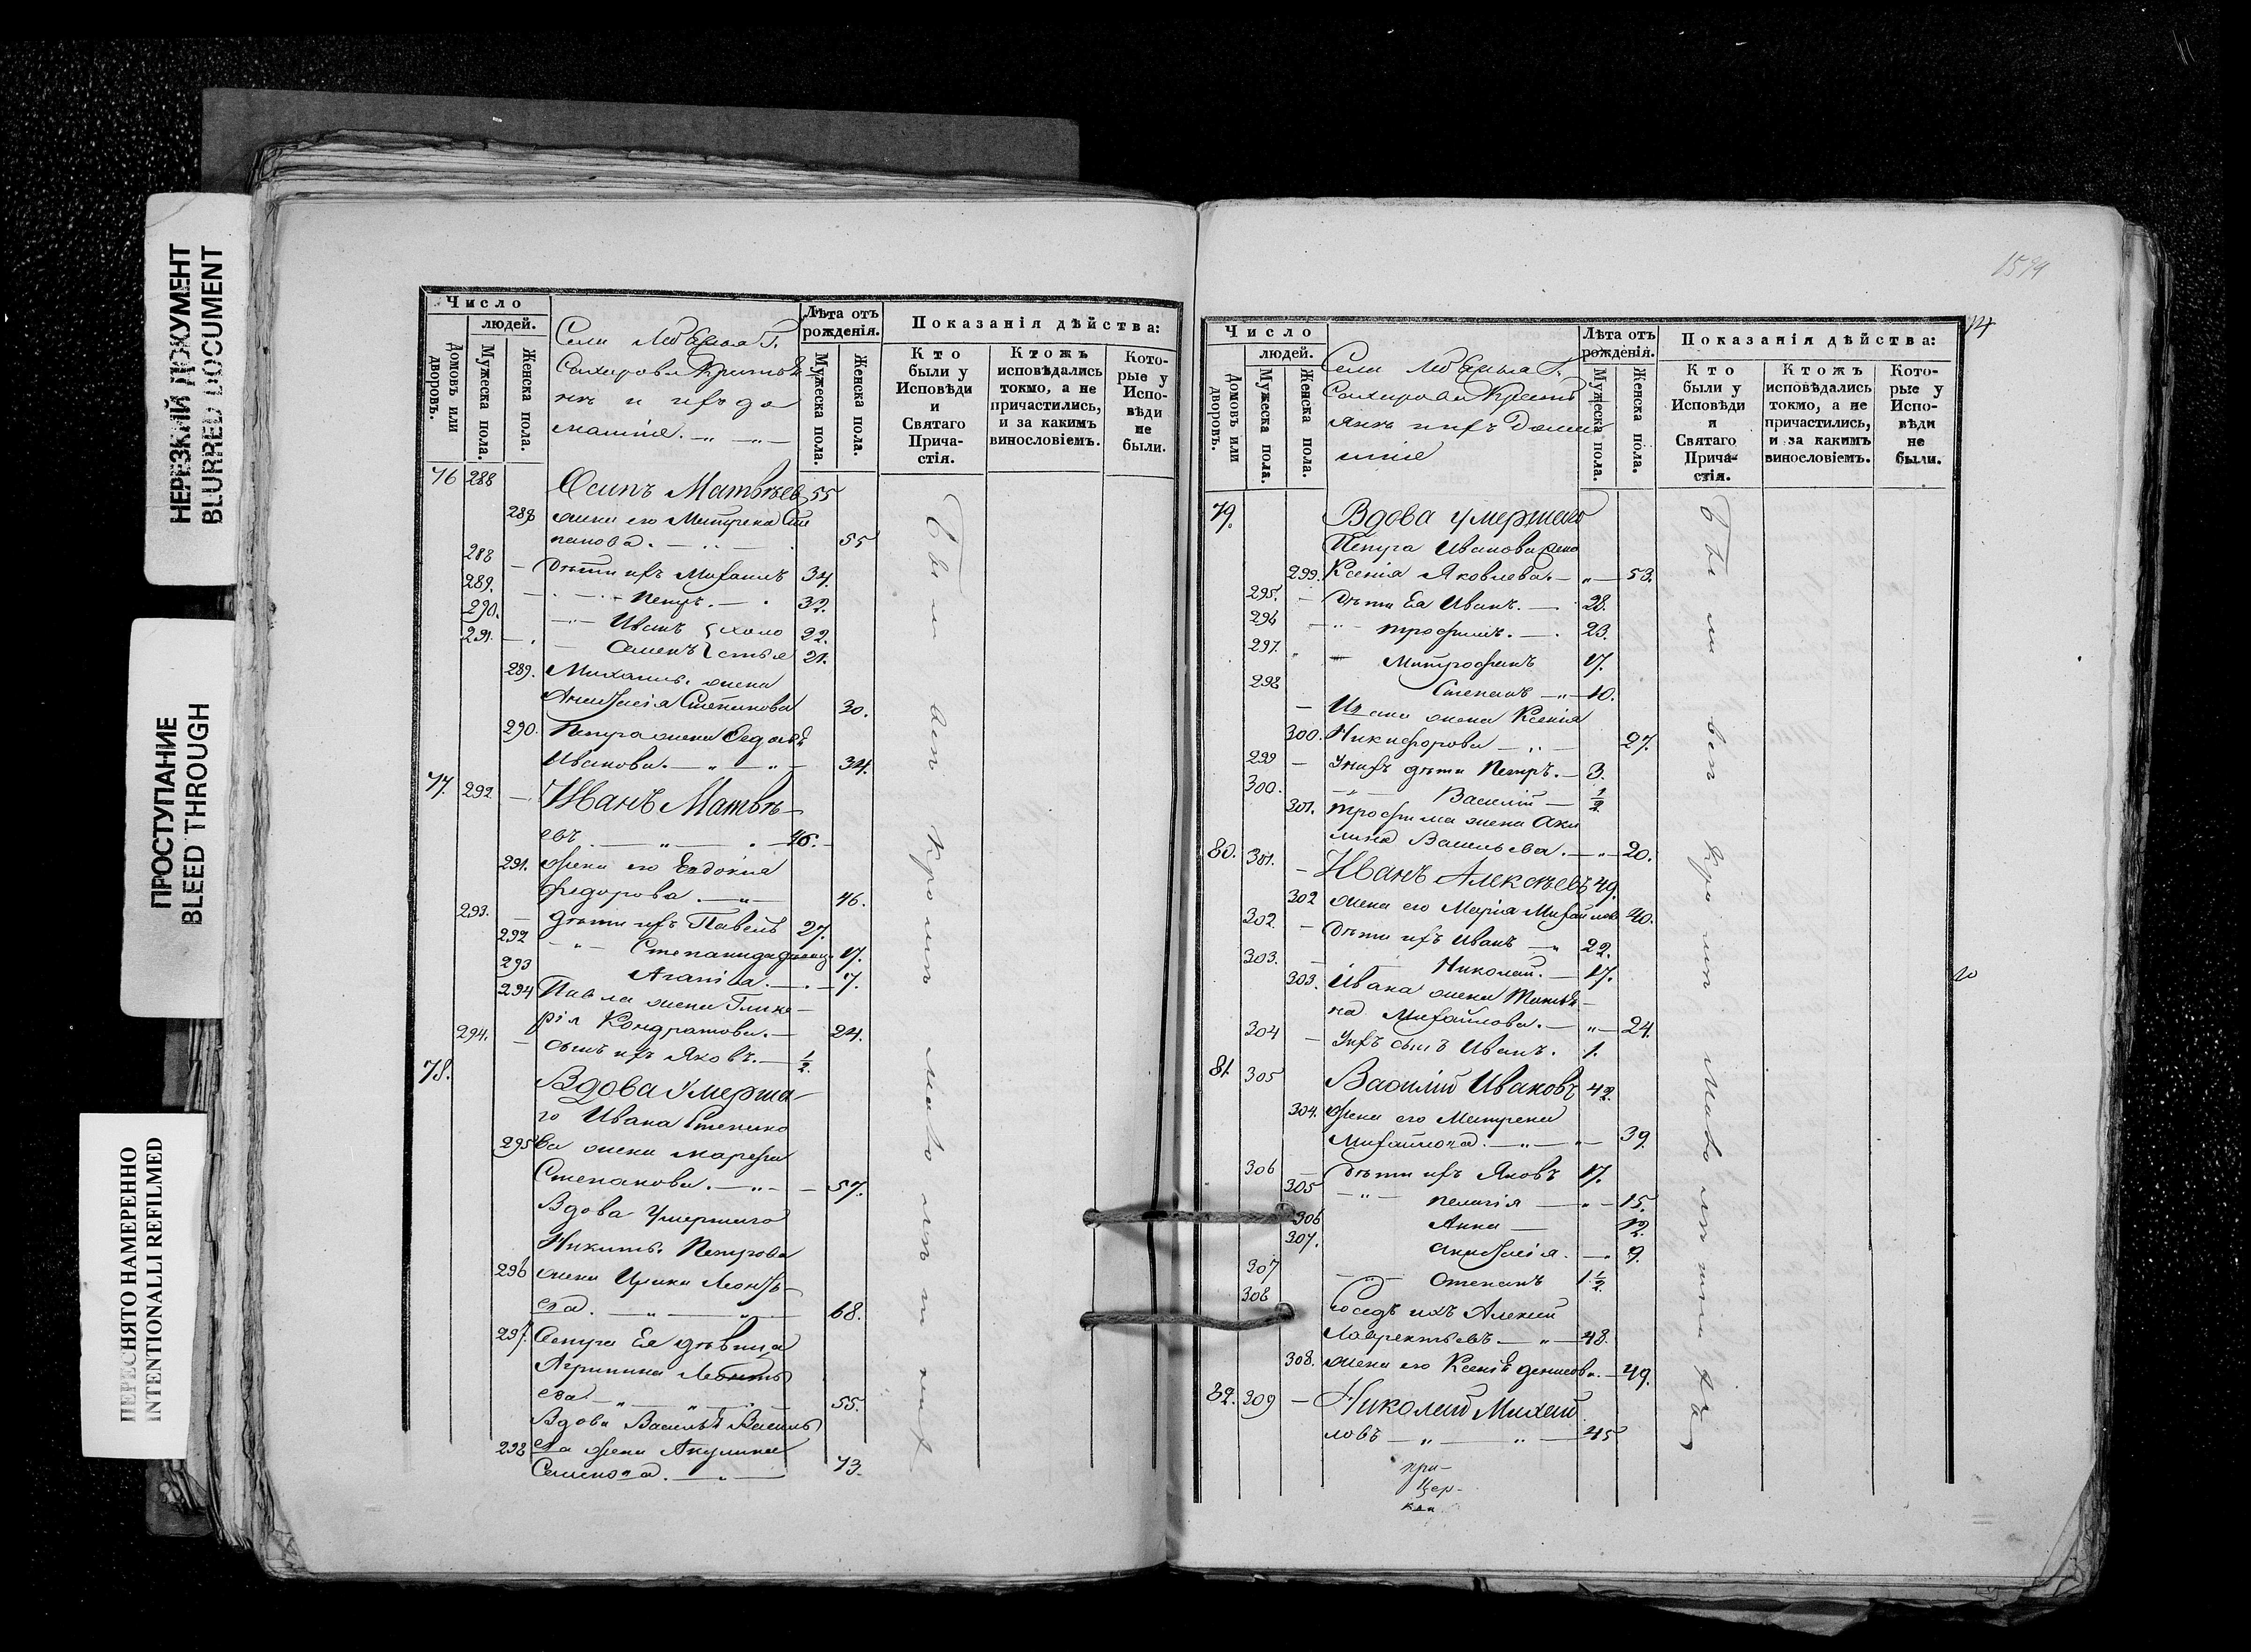 НЕРЕЗКИЙ ДОКУМЕНТ
BLURRED DOCUMENT
ПРОСТУПАНИЕ
BLEED THROUGH
ПЕРЕСНЯТО НАМЕРЕННО
INTENTIONALLI REFILMED
Число
людей.
Домовъ или дворовъ.
Мужеска пола.
Женска пола.
Лѣта отъ рожденія.
Мужеска пола.
Женска пола.
Показанія дѣйства:
Кто были у Исповѣди и Святаго Причастія.
Ктожъ исповѣдались токмо, а не причастились, и за какимъ винословіемъ.
Которые у Исповѣди не были.
Села
76 288 Осипъ Матвѣев 55
288 жена его Матрена Сте
панова. 55
288 дѣти ихъ Михаилъ 34.
289. Петръ. 32.
290. Иванъ холо 22.
291. Семенъ стыя 21.
289. Михаила жена
Анастасія Степанова 30.
290. Петра жена Федосья
Иванова. 34.
77. 292 Иванъ Матвѣ-
евъ 46.
291. жена его Евдокия
Федорова 46.
293. дѣти ихъ Павелъ 27.
292 Степанида девица 17.
293 Агапіа 7.
294 Павла жена Глике-
рія Кондратова. 24.
294. сынъ ихъ Яковъ. 1/2.
78. Вдова Умерша-
го Ивана Степано
295 ва жена Марфа
Степанова. 57.
Вдова Умершаго
Никиты Петрова
296 жена Ирина Леонть-
ева. 68.
297. Сестра Ея дѣвица
Агрипина Леонть
ева 55.
Вдова Василья Василь
298 ева жена Акулина
Семенова. 73.
Были вси кромѣ малолѣтнихъ
1579
14
Число
людей.
Домовъ или дворовъ.
Мужеска пола.
Женска пола.
Лѣта отъ рожденія.
Мужеска пола.
Женска пола.
Показанія дѣйства:
Кто были у Исповѣди и Святаго Причастія.
Ктожъ исповѣдались токмо, а не причастились, и за какимъ винословіемъ.
Которые у Исповѣди не были.
Села
79. Вдова умершаго
Петра Иванова жена
299. Ксенія Яковлева. 53.
295. дѣти Ея Иванъ. 28.
296 Трофимъ. 23.
297. Митрофанъ 17.
298 Степанъ 10.
Ивана жена Ксения
300. Никифорова 27.
299 У нихъ дѣти Петръ. 3.
300. Василій 1/2
301. Трофима жена Аку
лина Васильева. 20.
80. 301. Иванъ Алексѣевъ 49.
302 жена его Марія Михайлова 40.
302. дѣти ихъ Иванъ 22.
303. Николай. 17.
303. Ивана жена Татья-
на Михайлова. 24.
304 У нихъ сынъ Иванъ. 1.
81. 305 Василій Ивановъ 42.
304. жена его Матрена
Михайлова. 39.
306 дѣти ихъ Яковъ 17.
305 Пелагія 15.
306 Анна 12.
307. Анастасія. 9.
307 Степанъ 1 1/2
308 Сосѣдъ ихъ Алексий
Лаврентьевъ 48.
308. жена его Ксенія Денисова. 49.
82. 309 Николай Михай
ловъ 45
Были вси кромѣ малолѣтнихъ
при-
цер-
кви